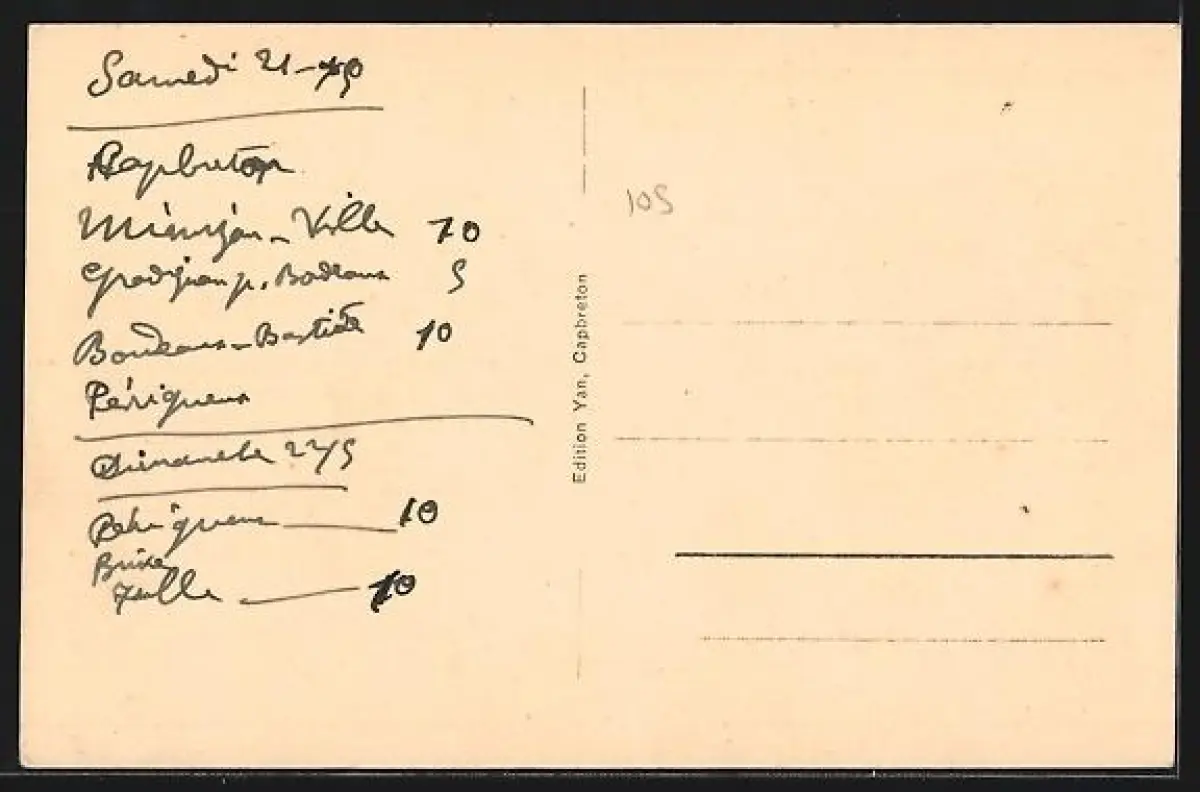 Samedi 21-
Capbreton
Mimizan-Ville 10
Gradignan p. Bordeaux 5
Bordeaux-Bastide 10
Périgueux
Dimanche 22/5
Périgueux 10
Brive
Tulle 10
Edition Yan, Capbreton
105